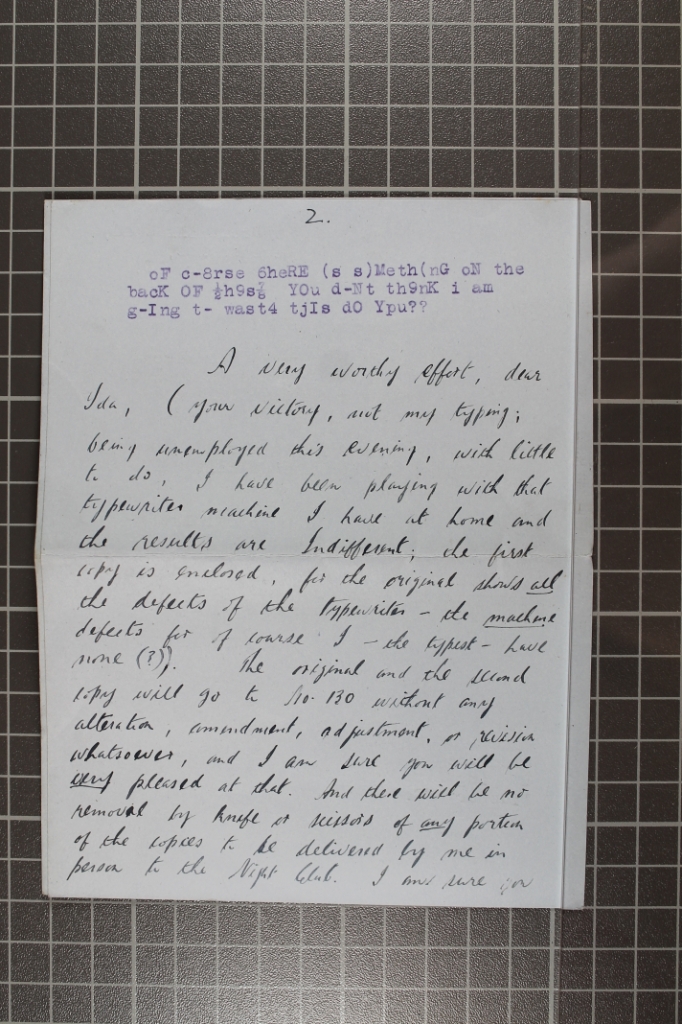 2.
oF c-8rse 6heRE (s s)Meth(nG oN the
bacK OF ½h9s⅔ YOu d-Nt th9nK i am
g-Ing t- wast4 tjIs dO Ypu??
A very worthy effort, dear
Ida, (your victory, not my typing;
being unemployed this evening, with little
to do, I have been playing with that
typewriter machine I have at home and
the results are Indifferent; the first
copy is enclosed, for the original shows all
the defects of the typewriter - the machine
defects for of course I - the typist - have
none (?)). The original and the second
copy will go to No. 130 without any
alteration, amendment, adjustment, or revision
whatsoever, and I am sure you will be
very pleased at that. And there will be no
removal by knife or scissors of any portion
of the copies to be delivered by me in
person to the Night Club. I am sure you